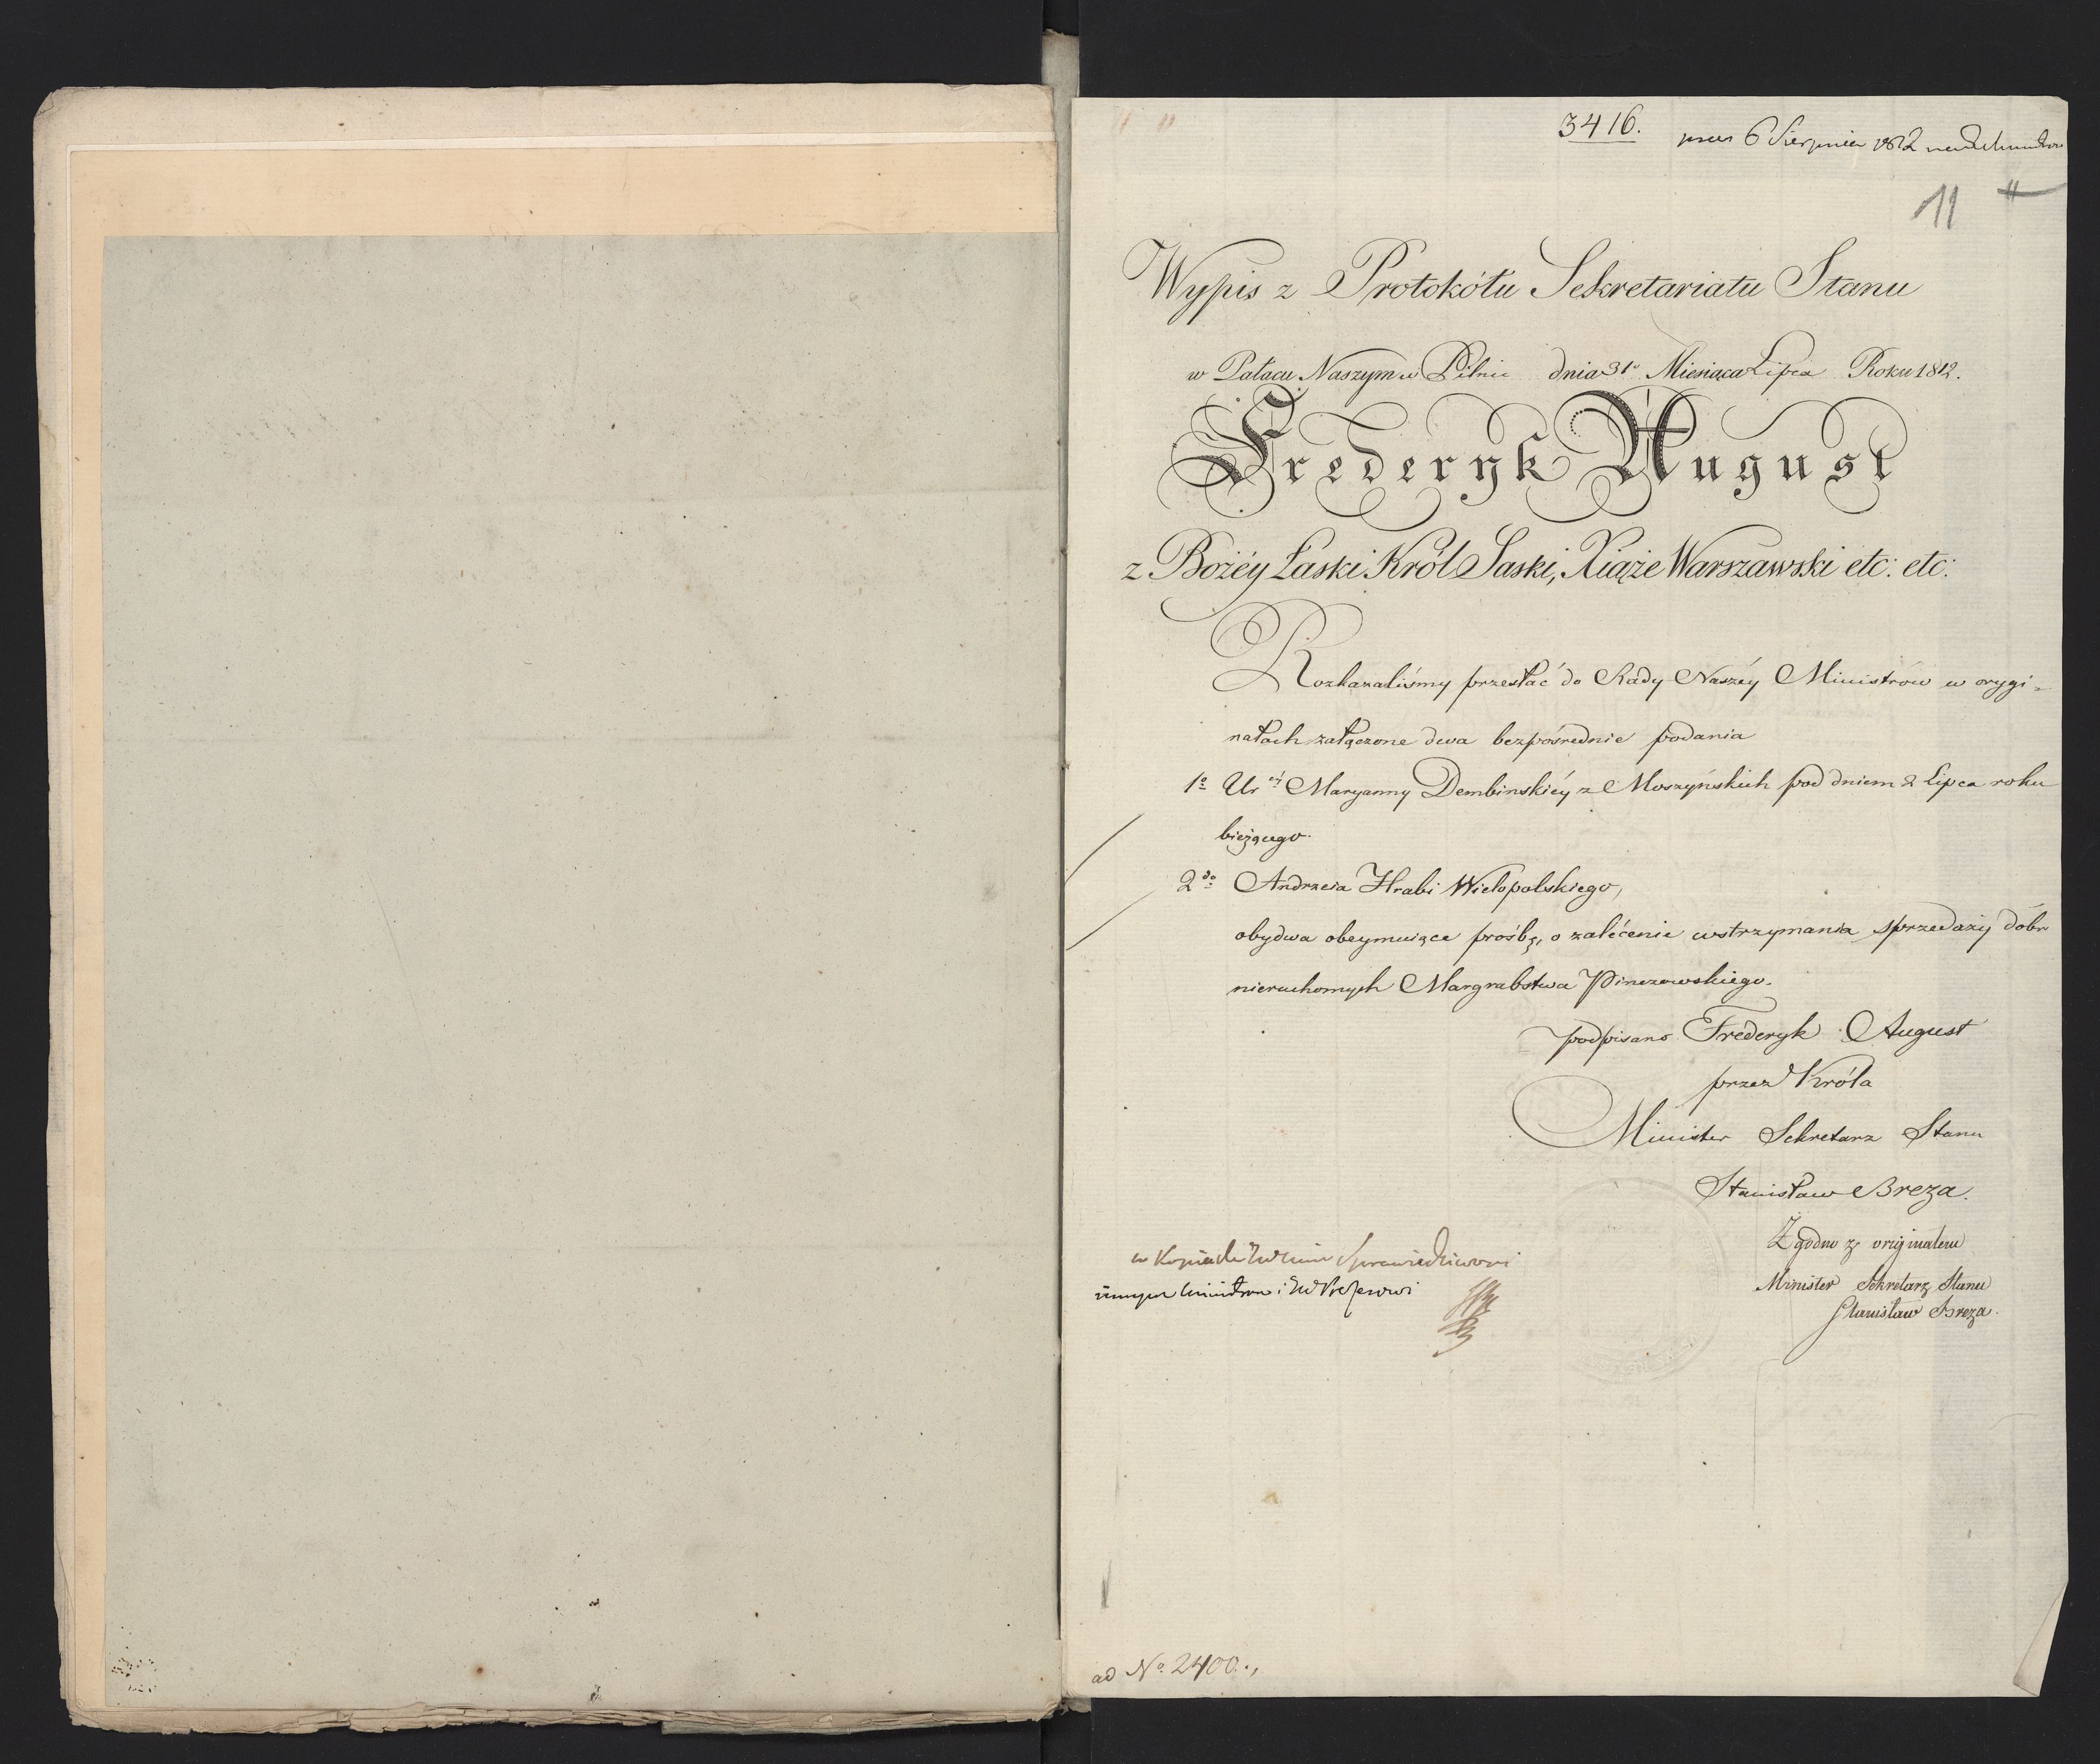 3416.
6 Sierpnia 1812
11
Wypis z Protokółu Sekretariatu Stanu
w Pałacu Naszym w Pilnic dnia 31º Miesiąca Lipca Roku 1812.
Frederyk August
z Bożéy Łaski Król Saski, Xiąże Warszawski etc: etc:
Rozkazaliśmy przesłać do Rady Naszéy Ministrów w orygi=
nałach załączone dwa bezpośrednie podania
1º Ur éy Maryanny Dembinskiéy z Moszyńskich pod dniem 2 Lipca roku
bieżącego.
2do Andrzeia Hrabi Wielopolskiego,
obydwa obeymuiące prośbę, o zalécenie wstrzymania sprzedaży dóbr
nieruchomych Margrabstwa Pinczowskiego.
podpisano Frederyk August
przez Króla
Minister Sekretarz Stanu
Stanisław Breza.
Zgodno z originałem
Minister Sekretarz Stanu
Stanisław Breza.
w Sprawiedliwości
i
ad Nº 2400.,